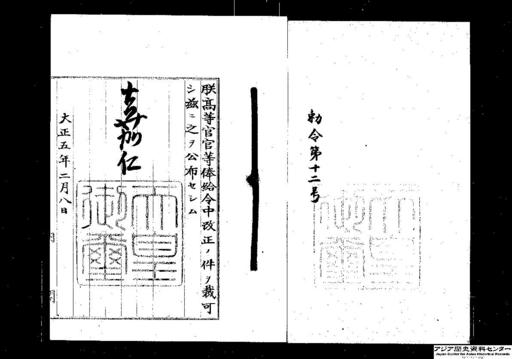 勅令第十二号
朕高等官官等俸給令中改正ノ件ヲ裁可
シ茲ニ之ヲ公布セシム
嘉仁
天皇御璽
大正五年二月八日
アジア歴史資料センター
Japan Center for Asian Historical Records